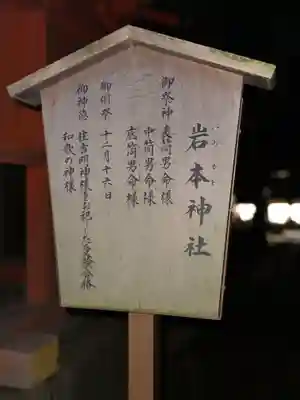 岩本神社
いわもと
御祭神 表筒男命様
中筒男命様
底筒男命様
御例祭 十二月十六日
御神徳 住吉明神様をお祀りした
和歌の神様